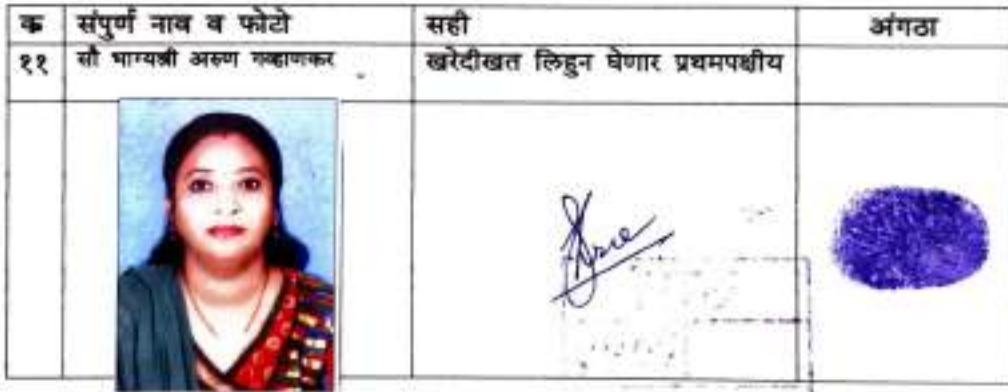 क संपुर्ण नाव व फोटो सही अंगठा
११ सौ भाग्यश्री अरुण गव्हाणकर खरेदीखत लिहुन घेणार प्रथमपक्षीय